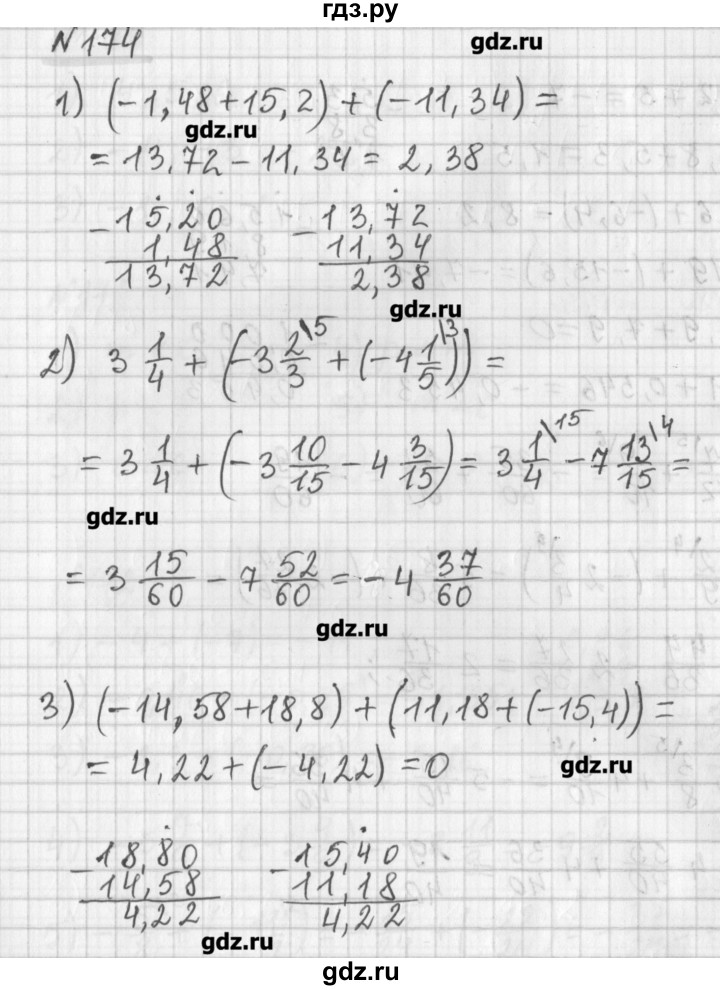 гдз.ру
N 174
gdz.ru
1) (-1,48+15,2)+(-11,34)=
gdz.ru
= 13,72-11,34= 2,38
-15,20 -13,72
1,48 11,34
13,72 2,38
gdz.ru
2) 3 1/4 + (-3 2/3\5 + (-4 1/5\3)) =
= 3 1/4 + (-3 10/15 - 4 3/15) = 3 1/4\15 - 7 13/15\4 =
gdz.ru
= 3 15/60 - 7 52/60 = -4 37/60
gdz.ru
3) (-14,58+18,8)+(11,18+(-15,4))=
= 4,22+(-4,22)=0
gdz.ru
-18,80 -15,40
14,58 11,18
4,22 4,22
gdz.ru
gdz.ru